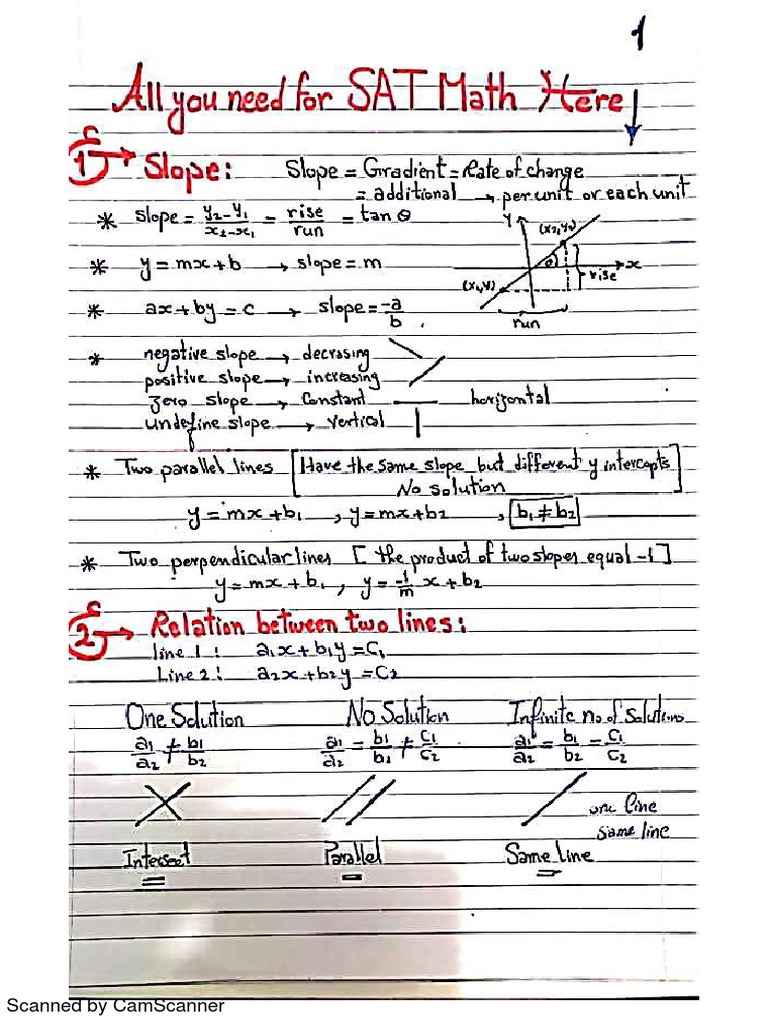 1
All you need for SAT Math Here ↓
1 → Slope: Slope = Gradient = Rate of change
= additional → per unit or each unit
* slope = y2-y1/x2-x1 = rise/run = tan θ
y (x2,y2)
* y = mx+b → slope = m
θ x rise
(x1,y1)
* ax+by=c → slope = -a/b
run
* negative slope → decrasing
positive slope → increasing
zero slope → Constant horizontal
undefine slope → vertical
* Two parallel lines [Have the same slope but different y intercepts
No solution]
y = mx+b1 , y = mx+b2 , b1 ≠ b2
* Two perpendicular lines [the product of two slopes equal -1]
y = mx+b1 , y = -1/m x + b2
2 → Relation between two lines:
line 1: a1x + b1y = C1
Line 2: a2x + b2y = C2
One Solution No Solution Infinite no of Solutions
a1/a2 ≠ b1/b2 a1/a2 = b1/b2 ≠ C1/C2 a1/a2 = b1/b2 = C1/C2
one line
same line
Intersect Parallel Same line
Scanned by CamScanner